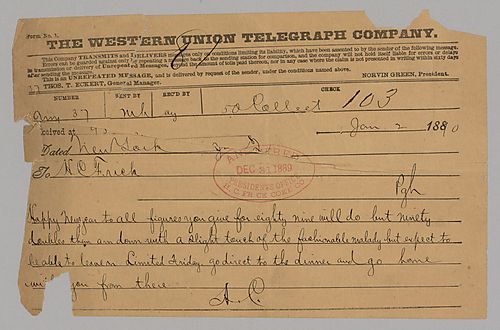 Form No. 1.
THE WESTERN UNION TELEGRAPH COMPANY.
This Company TRANSMITS and DELIVERS messages only on conditions limiting its liability, which have been assented to by the sender of the following message.
Errors can be guarded against only by repeating a message back to the sending station for comparison, and the company will not hold itself liable for errors or delays
in transmission or delivery of Unrepeated Messages, beyond the amount of tolls paid thereon, nor in any case where the claim is not presented in writing within sixty days
after sending the message.
This is an UNREPEATED MESSAGE, and is delivered by request of the sender, under the conditions named above.
THOS. T. ECKERT, General Manager. NORVIN GREEN, President.
NUMBER SENT BY REC'D BY CHECK
37 Mh ay Collect 103
ceived at Jan 2 1880
Dated New York 2
ANSWERED
DEC 31 1889
PRESIDENTS OFFICE
H. C. FRICK COKE CO.
To H C Frick
Pgh
Happy Newyear to all figures you give for eighty nine will do but ninety
doubles them am down with a slight touch of the fashionable malady but expect to
be able to leave on Limited Friday go direct to the dinner and go home
with you from there
A. C.